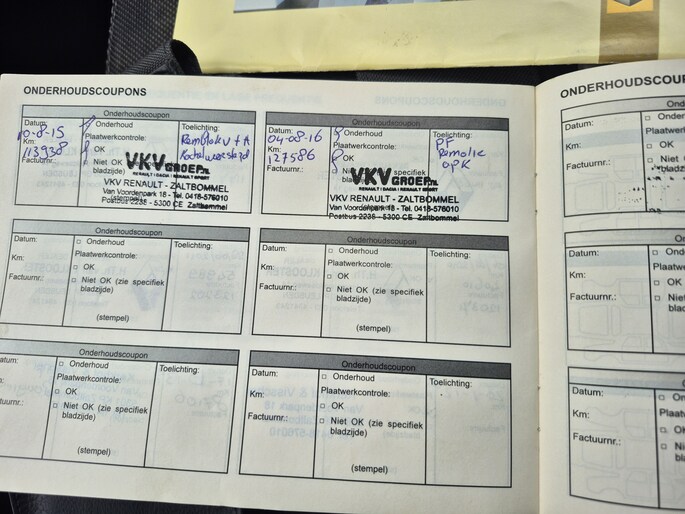 ONDERHOUDSCOUPONS
Onderhoudscoupon
Datum:
10-8-15
Km:
113938
Factuurnr.:
Onderhoud
Plaatwerkcontrole:
OK
Niet OK
bladzijde)
Toelichting:
Remblok V + A
VKV GROEP.NL
RENAULT | DACIA | RENAULT SPORT
VKV RENAULT - ZALTBOMMEL
Van Voordenpark 18 - Tel. 0418-576010
Postbus 2238 - 5300 CE Zaltbommel
(stempel)
Onderhoudscoupon
Datum:
04-08-16
Km:
127586
Factuurnr.:
Onderhoud
Plaatwerkcontrole:
OK
Niet OK specifiek
Toelichting:
PF
Remolie
OPK
VKV GROEP.NL
RENAULT | DACIA | RENAULT SPORT
VKV RENAULT - ZALTBOMMEL
Van Voordenpark 18 - Tel. 0418-576010
Postbus 2238 - 5300 CE Zaltbommel
Onderhoudscoupon
Datum:
Km:
Factuurnr.:
Onderhoud
Plaatwerkcontrole:
OK
Niet OK (zie specifiek
bladzijde)
(stempel)
Toelichting:
Onderhoudscoupon
Datum:
Km:
Factuurnr.:
Onderhoud
Plaatwerkcontrole:
OK
Niet OK (zie specifiek
bladzijde)
(stempel)
Toelichting:
Onderhoudscoupon
atum:
m:
actuurnr.:
Onderhoud
Plaatwerkcontrole:
OK
Niet OK (zie specifiek
bladzijde)
(stempel)
Toelichting:
Onderhoudscoupon
Datum:
Km:
Factuurnr.:
Onderhoud
Plaatwerkcontrole:
OK
Niet OK (zie specifiek
bladzijde)
(stempel)
Toelichting:
ONDERHOUDSCOU
Datum:
Km:
Factuurnr.:
Ond
Plaatwer
OK
Niet
bladz
Datum:
Km:
Factuurnr.:
Onde
Plaatwerk
OK
Niet O
bladz
Datum:
Km:
Factuurnr.:
Onder
Plaatwerkc
OK
Niet OK
bladzij